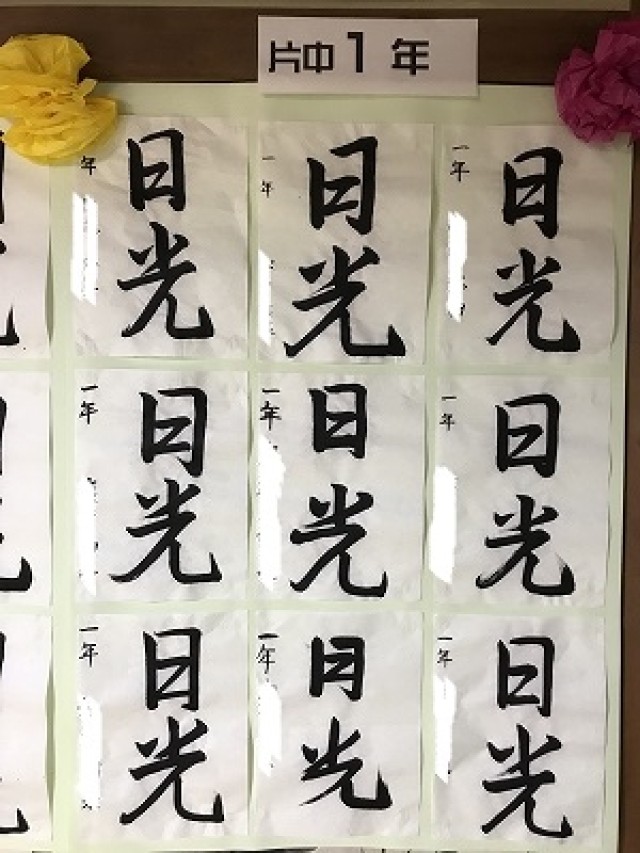 片中1年
一年
日光
一年
日光
一年
日光
一年
日光
一年
日光
一年
日光
一年
日光
一年
日光
一年
日光